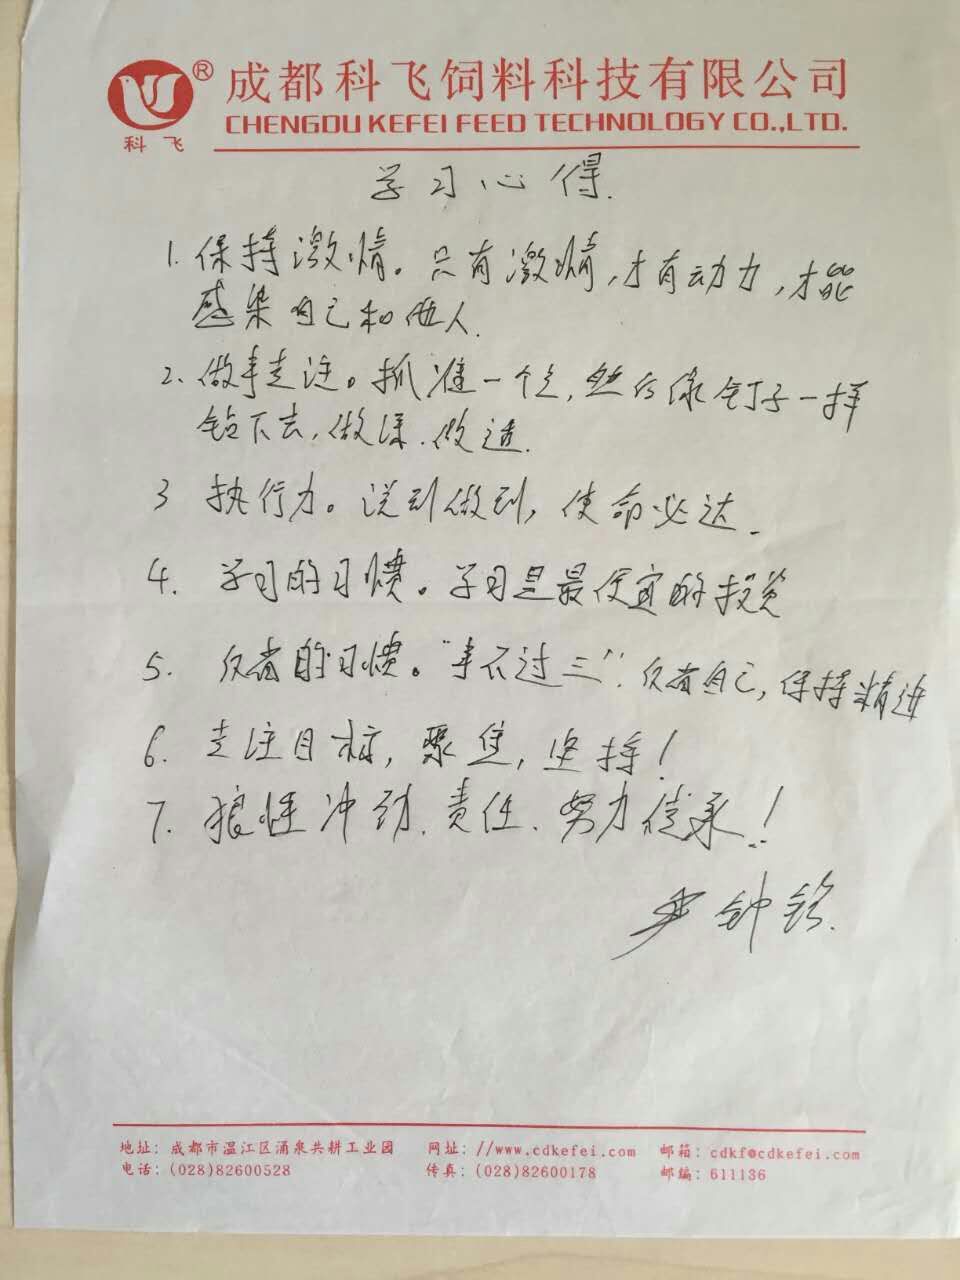 ® 成都科飞饲料科技有限公司
科飞 CHENGDU KEFEI FEED TECHNOLOGY CO.,LTD.
学习心得.
1. 保持激情。只有激情,才有动力,才能
感染自己和他人.
2. 做事专注。抓准一个点,然后像钉子一样
钻下去,做深.做透.
3 执行力。说到做到,使命必达.
4. 学习的习惯。学习是最便宜的投资
5. 反省的习惯。"事不过三".反省自己,保持精进
6. 专注目标,聚焦,坚持!
7. 狼性冲劲.责任.努力传承!
尹钟铭.
地址: 成都市温江区涌泉共耕工业园 网址: //www.cdkefei.com 邮箱: cdkf@cdkefei.com
电话: (028)82600528 传真: (028)82600178 邮编: 611136